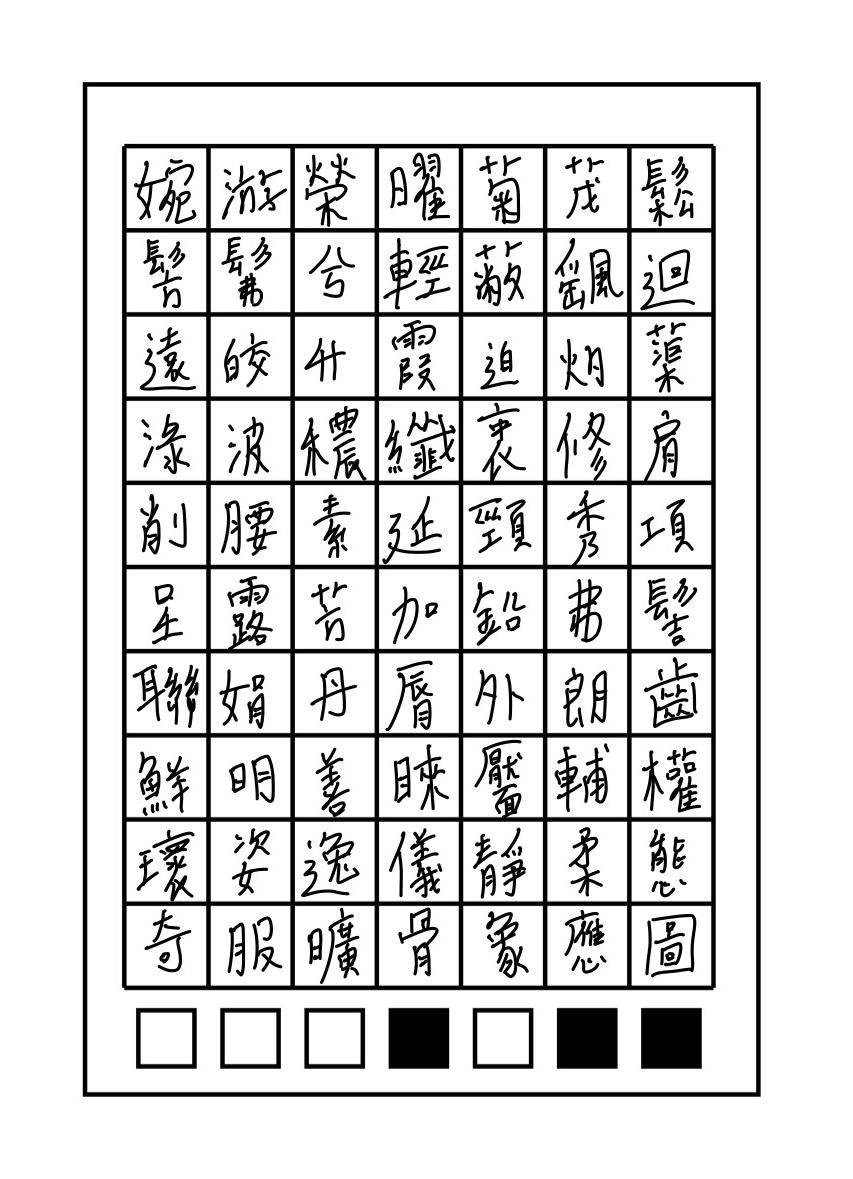 婉游榮曜菊茂鬆
髣髴兮輕蔽颻迴
遠皎升霞迫灼蕖
淥波穠纖衷修肩
削腰素延頸秀項
呈露芳加鉛弗髻
聯娟丹脣外朗齒
鮮明善睞靨輔權
瓌姿逸儀靜柔態
奇服曠骨象應圖